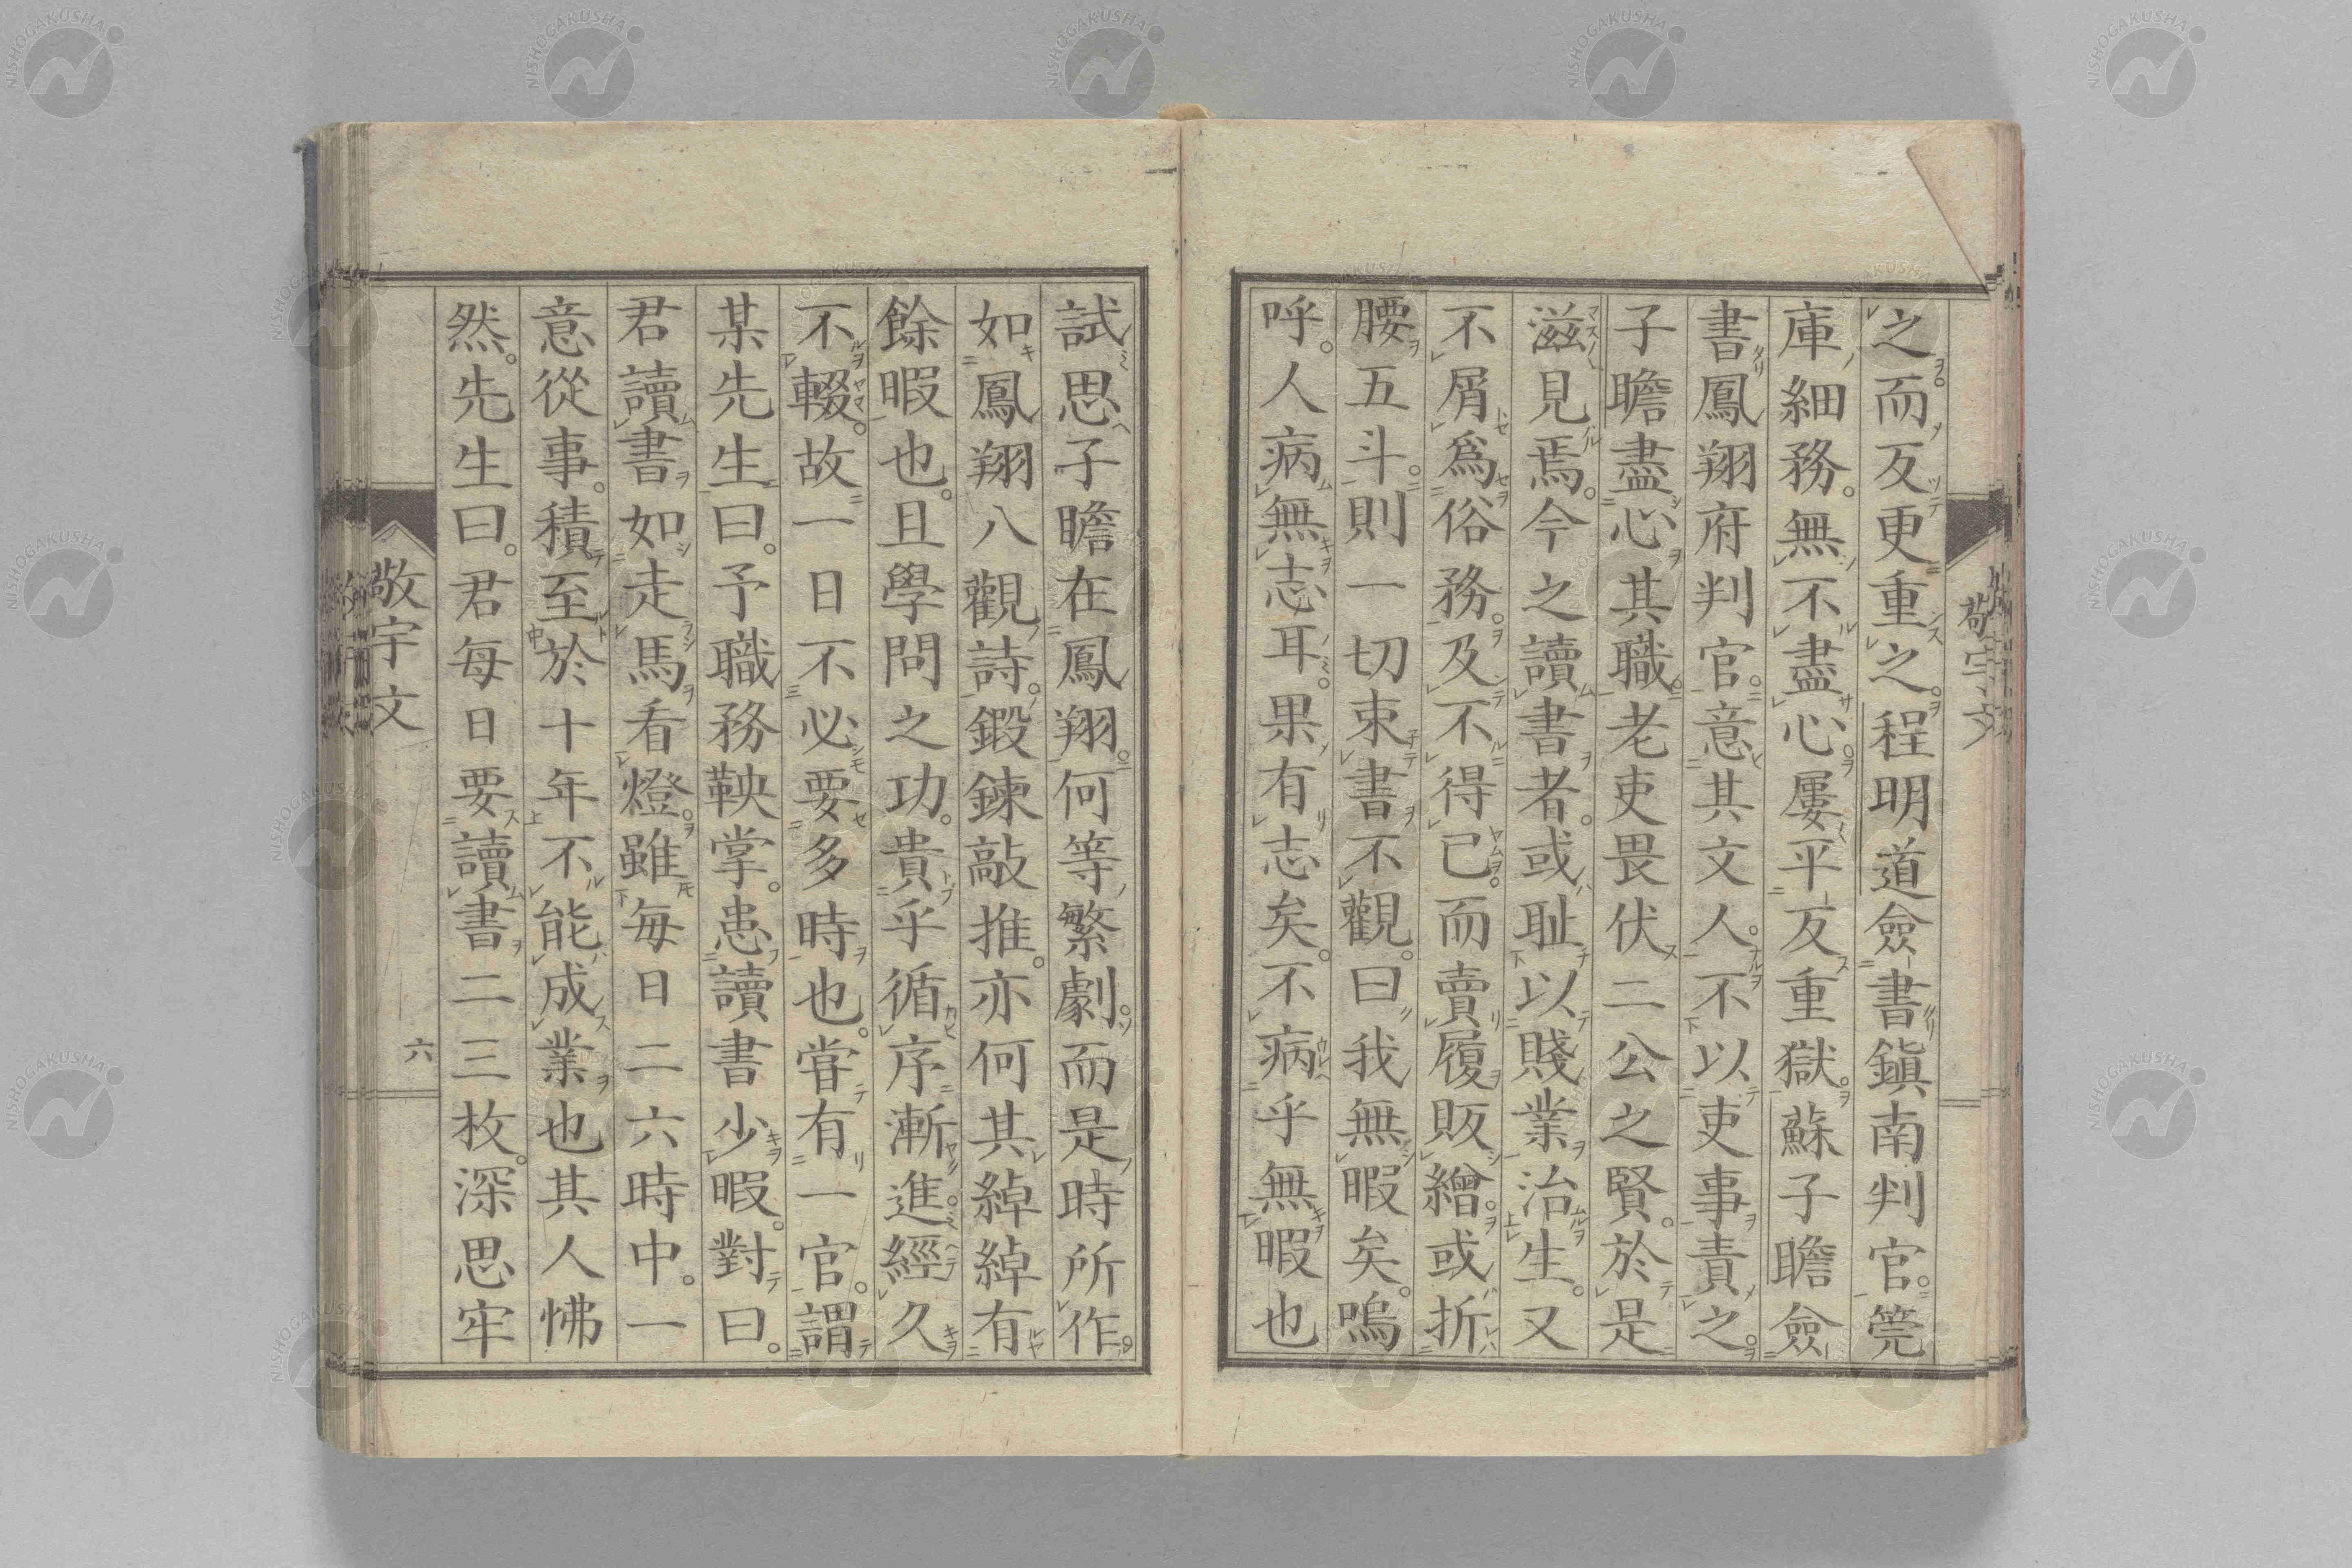 之而反更重之。程明道僉書鎭南判官。筦
庫細務。無不盡心。屢平反重獄。蘇子瞻僉
書鳳翔府判官。意其文人。不以吏事責之。
子瞻盡心其職。老吏畏伏二公之賢。於是
滋見焉。今之讀書者。或耻以賤業治生。又
不屑爲俗務。及不得已而賣履販繒。或折
腰五斗。則一切束書不觀。曰我無暇矣。嗚
呼。人病無志耳。果有志矣。不病乎無暇也
敬宇文
試思子瞻在鳳翔。何等繁劇。而是時所作
如鳳翔八觀詩。鍛鍊敲推。亦何其綽綽有
餘暇也。且學問之功。貴乎循序漸進。經久
不輟。故一日不必要多時也。甞有一官。謂
某先生曰。予職務鞅掌。患讀書少暇。對曰。
君讀書如走馬看燈。雖每日二六時中。一
意從事。積至於十年不能成業也其人怫
然。先生曰。君每日要讀書二三枚。深思牢
敬宇文
六
NISHOGAKUSHA